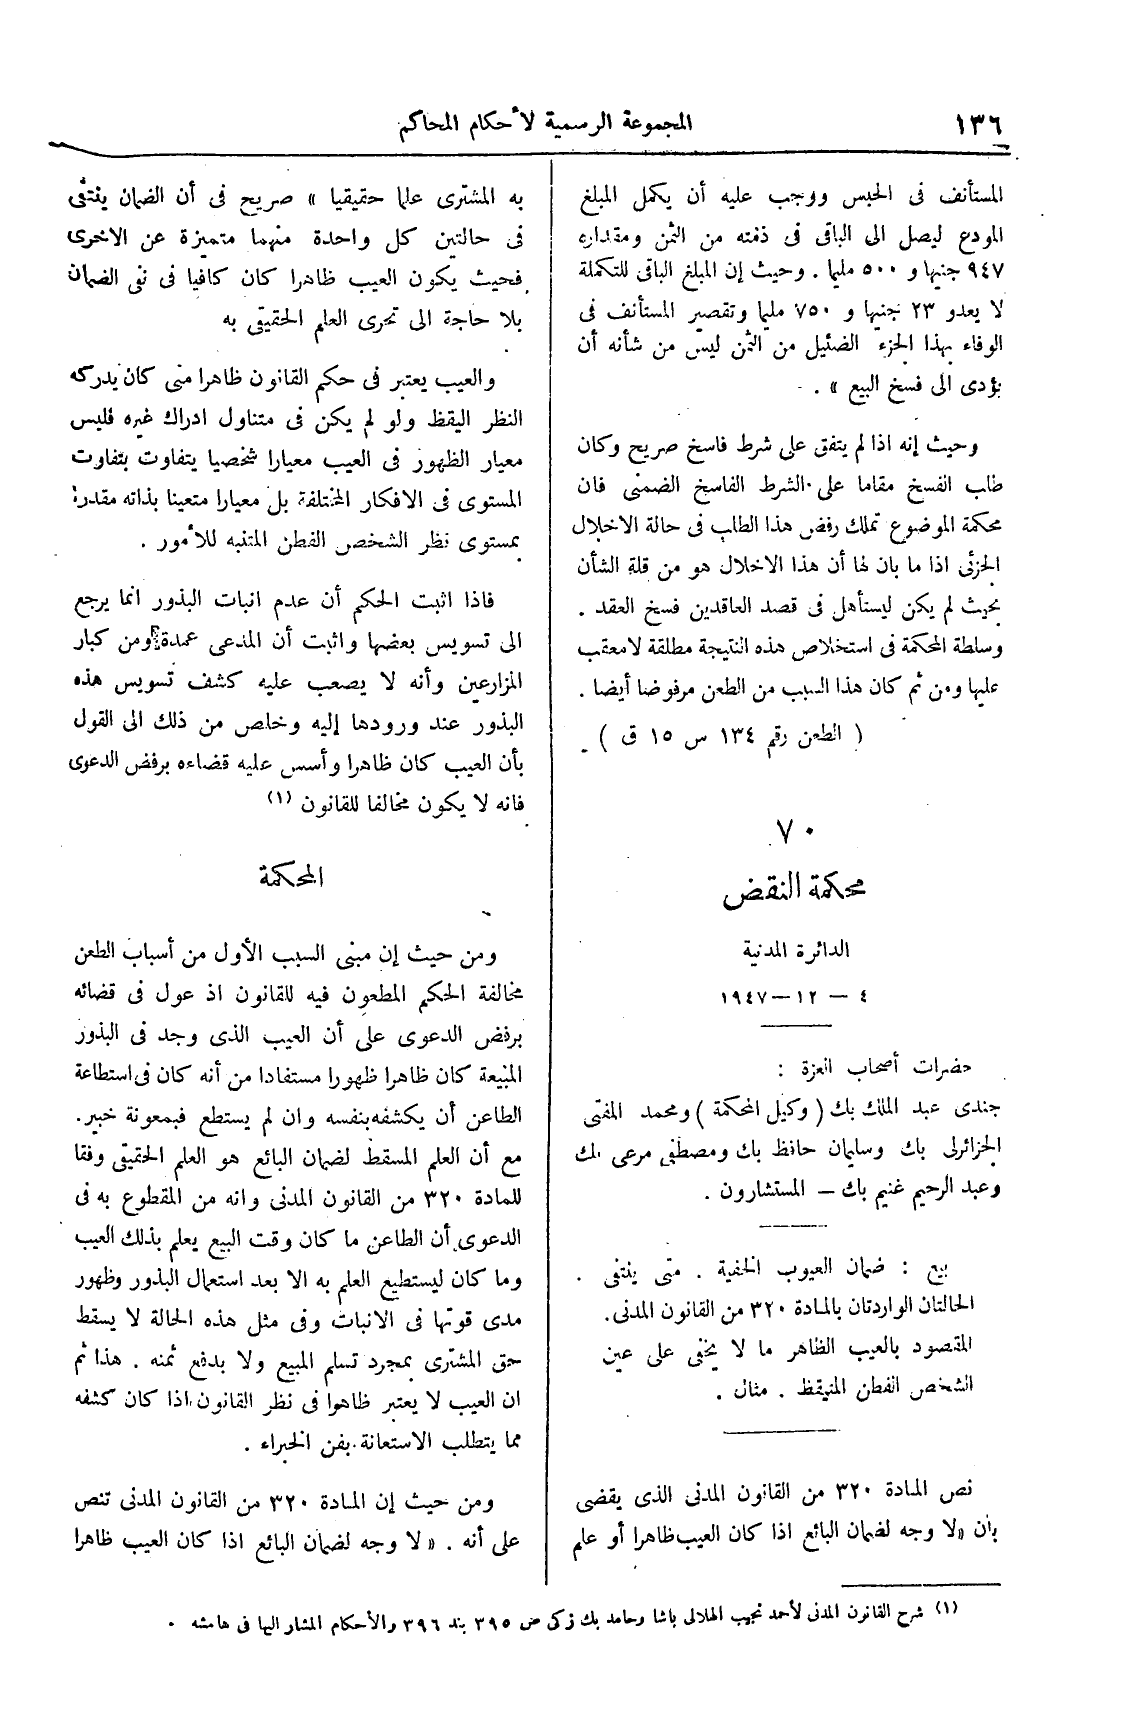 ١٣٦
المجموعة الرسمية لأحكام المحاكم
المستأنف فى الحبس ووجب عليه أن يكمل المبلغ
المودع ليصل الى الباقى فى ذمته من الثمن ومقداره
٩٤٧ جنيها و ٥٠٠ مليما . وحيث إن المبلغ الباقى للتكملة
لا يعدو ٢٣ جنيها و ٧٥٠ مليما وتقصير المستأنف فى
الوفاء بهذا الجزء الضئيل من الثمن ليس من شأنه أن
يؤدى الى فسخ البيع » .
وحيث إنه اذا لم يتفق على شرط فاسخ صريح وكان
طلب الفسخ مقاما على الشرط الفاسخ الضمنى فان
محكمة الموضوع تملك رفض هذا الطلب فى حالة الاخلال
الجزئى اذا ما بان لها أن هذا الاخلال هو من قلة الشأن
بحيث لم يكن ليستأهل فى قصد العاقدين فسخ العقد .
وسلطة المحكمة فى استخلاص هذه النتيجة مطلقة لا معقب
عليها ومن ثم كان هذا السبب من الطعن مرفوضا أيضا .
( الطعن رقم ١٣٤ س ١٥ ق ) .
٧٠
محكمة النقض
الدائرة المدنية
٤ – ١٢ – ١٩٤٧
حضرات أصحاب العزة :
جندى عبد الملك بك ( وكيل المحكمة ) ومحمد المفتى
الجزائرلى بك وسليمان حافظ بك ومصطفى مرعى بك
وعبد الرحيم غنيم بك – المستشارون .
بيع : ضمان العيوب الخفية . متى ينتفى .
الحالتان الواردتان بالمادة ٣٢٠ من القانون المدنى .
المقصود بالعيب الظاهر ما لا يخفى على عين
الشخص الفطن المتيقظ . مثال .
نص المادة ٣٢٠ من القانون المدنى الذى يقضى
بأن « لا وجه لضمان البائع اذا كان العيب ظاهرا أو علم
به المشترى علما حقيقيا » صريح فى أن الضمان ينتفى
فى حالتين كل واحدة منهما متميزة عن الاخرى
فحيث يكون العيب ظاهرا كان كافيا فى نفى الضمان
بلا حاجة الى تحرى العلم الحقيقى به
والعيب يعتبر فى حكم القانون ظاهرا متى كان يدركه
النظر اليقظ ولو لم يكن فى متناول ادراك غيره فليس
معيار الظهور فى العيب معيارا شخصيا يتفاوت بتفاوت
المستوى فى الافكار المختلفة بل معيارا متعينا بذاته مقدرا
بمستوى نظر الشخص الفطن المتنبه للأمور .
فاذا اثبت الحكم أن عدم انبات البذور انما يرجع
الى تسويس بعضها واثبت أن المدعى عمدة ومن كبار
المزارعين وأنه لا يصعب عليه كشف تسويس هذه
البذور عند ورودها إليه وخلص من ذلك الى القول
بأن العيب كان ظاهرا وأسس عليه قضاءه برفض الدعوى
فانه لا يكون مخالفا للقانون (١)
المحكمة
ومن حيث إن مبنى السبب الأول من أسباب الطعن
مخالفة الحكم المطعون فيه للقانون اذ عول فى قضائه
برفض الدعوى على أن العيب الذى وجد فى البذور
المبيعة كان ظاهرا ظهورا مستفادا من أنه كان فى استطاعة
الطاعن أن يكشفه بنفسه وان لم يستطع فبمعونة خبير .
مع أن العلم المسقط لضمان البائع هو العلم الحقيقى وفقا
للمادة ٣٢٠ من القانون المدنى وانه من المقطوع به فى
الدعوى أن الطاعن ما كان وقت البيع يعلم بذلك العيب
وما كان ليستطيع العلم به الا بعد استعمال البذور وظهور
مدى قوتها فى الانبات وفى مثل هذه الحالة لا يسقط
حق المشترى بمجرد تسلم المبيع ولا بدفع ثمنه . هذا ثم
ان العيب لا يعتبر ظاهرا فى نظر القانون اذا كان كشفه
مما يتطلب الاستعانة بفن الخبراء .
ومن حيث إن المادة ٣٢٠ من القانون المدنى تنص
على أنه . « لا وجه لضمان البائع اذا كان العيب ظاهرا
(١) شرح القانون المدنى لأحمد نجيب الهلالى باشا وحامد بك زكى ص ٣٩٥ بند ٣٩٦ والأحكام المشار اليها فى هامشه .